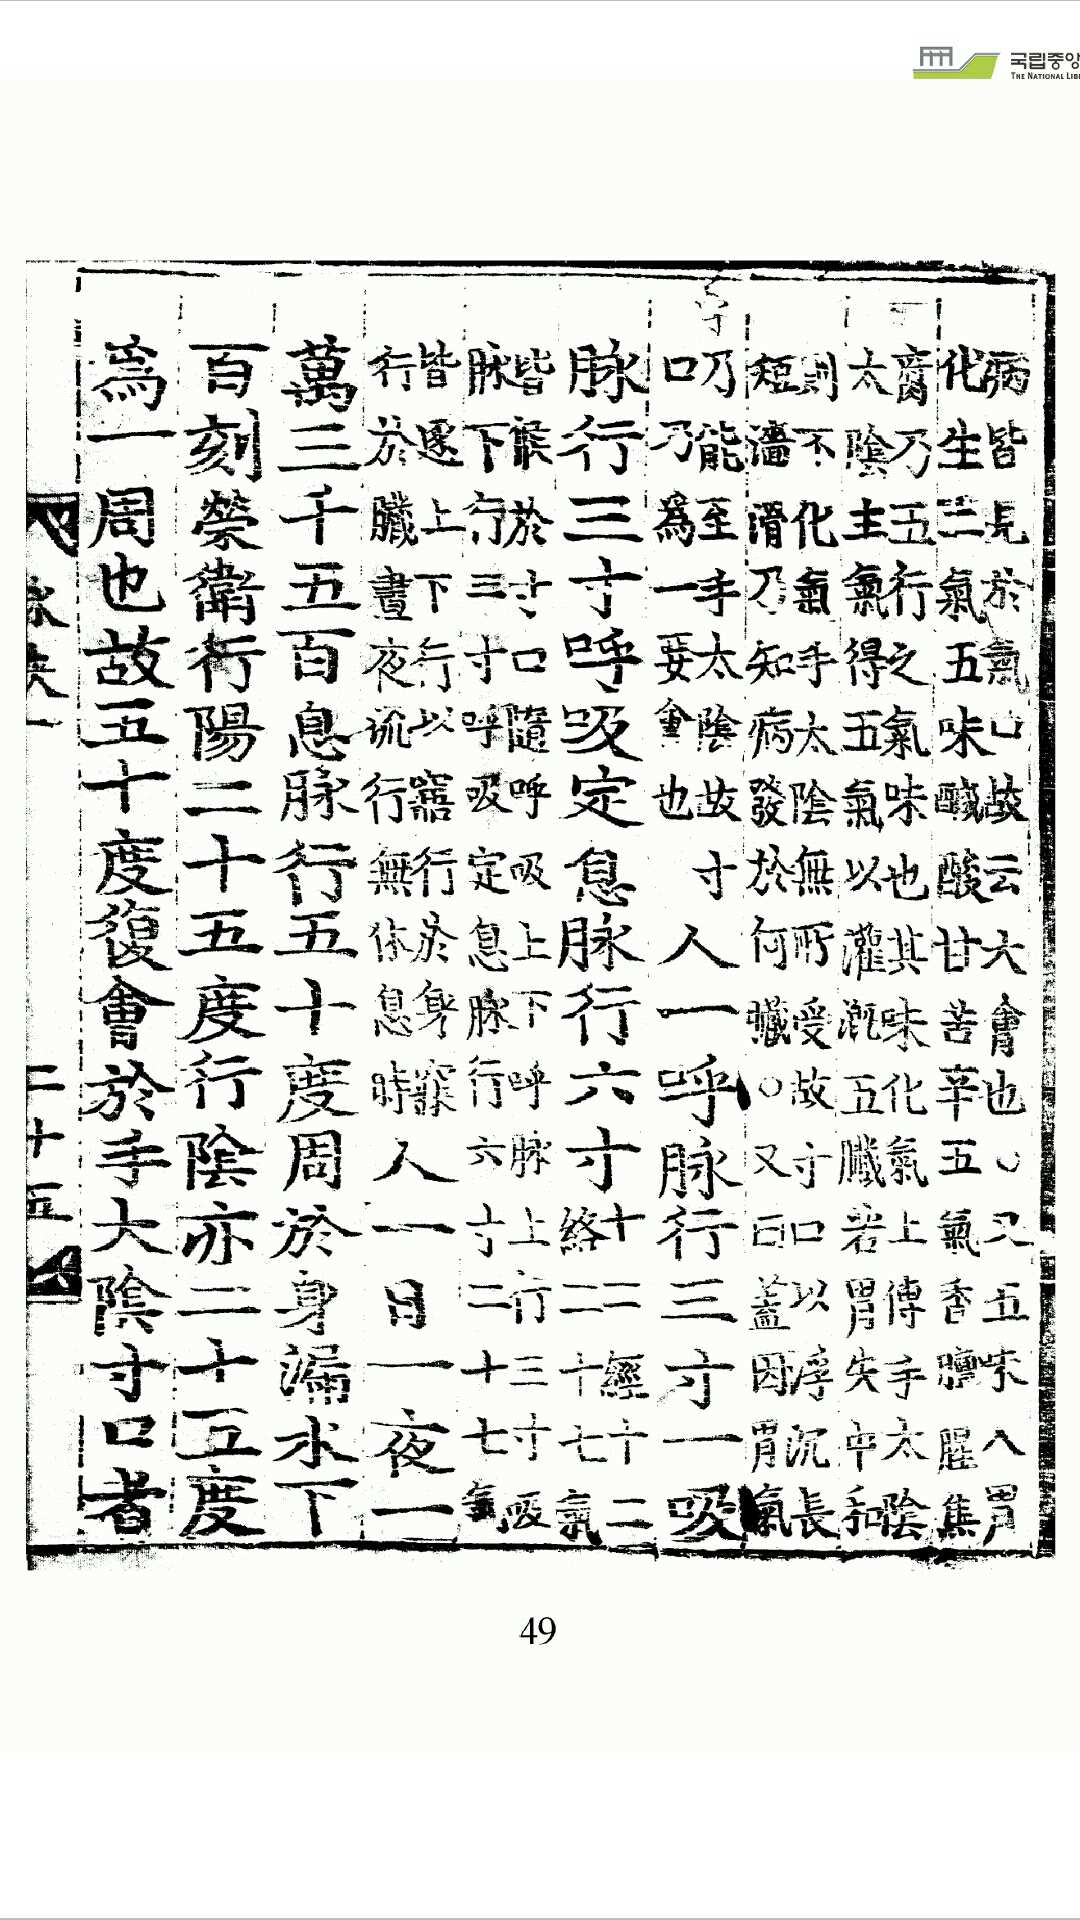 국립중앙
THE NATIONAL LIB
病皆見於氣口故云大會也○又五味入胃
化生五氣五味鹹酸甘苦辛五氣香臊腥焦
腐乃五行之氣味也其味化氣上傳手太陰
太陰主氣得五氣以灌漑五臟若胃失中和
則不化氣手太陰無所受故寸口以浮沉長
短濇滑乃知病發於何臟○又曰蓋因胃氣
乃能至手太陰故寸
口乃爲一要會也
人一呼脉行三寸一吸
脉行三寸呼吸定息脉行六寸
十二經十二
絡二十七氣
皆候於寸口隨呼吸上下呼脉上行三寸吸
脉下行三寸呼吸定息脉行六寸二十七氣
皆逐上下行以竅行於身竅
行於臟晝夜流行無休息時
人一日一夜一
萬三千五百息脉行五十度周於身漏水下
百刻榮衛行陽二十五度行陰亦二十五度
爲一周也故五十度復會於手大陰寸口者
脉決一
二十五
49